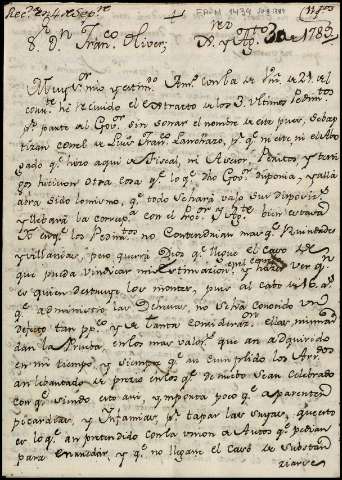 Rec.da en 4 de Sep.re
+
FAHM 1434
S.r D.n Fran.co Oliver;
y Ag.to 30 de 1789
Muy S.r mio y estim.do Am.o con la de Vm. de 21 del
corr.te hé recivido el extracto de los 3 ultimos Pedim.tos
p.r parte del Gov.or sin sonar el nombre de este pues, se bap
tizan con el de Luis Fran.co p.r q.e ni este, ni el Abo
gado q.e hizo aqui a Fiscal, ni Asesor, Peritos, y testi
gos hicieron otra cosa q.e lo q.e dho Gov.or disponia, y allá
ahora sido lo mismo, q.e todo se hará vajo sus disposic.s
y llebará la corresp.a con el
Yo creí q.e los Pedim.tos no contendrian mas q.e
y villanias, pero querrá Dios q.e llegue el caso de
que pueda vindicar mi estimacion, y hazer ver q.n
es quien destruye los montes, pues al cabo de 16 a.s
q.e administro las Dehesas, no se ha conocido un
defecto tan p.pl y de tanta considerac.on ellas mismas
dan la Prueba en los mas valores que an adquirido
en mi tiempo, y siempre q.e an cumplido los Arr.dos
an lebantado de precio en los q.e de nuebo se an celebrado
con q.e siendo esto asi, y importa poco q.e aparenten
picardias, y Infamias p.r tapar las suyas, que esto
es lo q.e an pretendido con la union de Autos q.e pedian
para enrredar, y q.e no llegase el caso de substan
ciarse